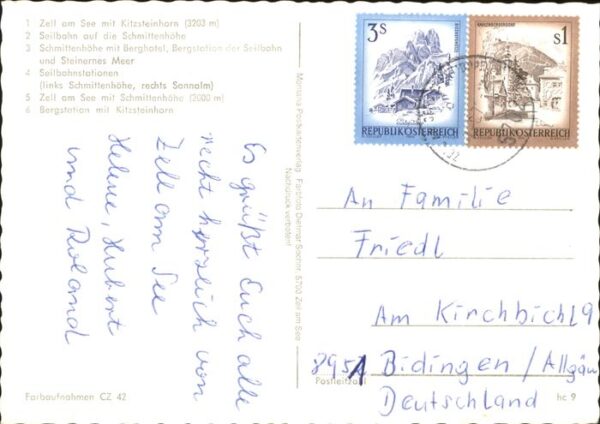 1 Zell am See mit Kitzsteinhorn (3203 m)
2 Seilbahn auf die Schmittenhöhe
3 Schmittenhöhe mit Berghotel, Bergstation der Seilbahn
und Steinernes Meer
4 Seilbahnstationen
(links Schmittenhöhe, rechts Sonnalm)
5 Zell am See mit Schmittenhöhe (2000 m)
6 Bergstation mit Kitzsteinhorn
Es grüßt Euch alle
recht herzlich von
Zell am See
Helene, Hubert
und Roland
Farbaufnahmen CZ 42
Postkartenverlag Farbfoto Dietmar Sochor, 5700 Zell am See
Nachdruck verboten!
3S
REPUBLIK ÖSTERREICH
S1
REPUBLIK ÖSTERREICH
An Familie
Friedl
Am Kirchbichl 9
8951 Bidingen / Allgäu
Postleitzahl
Deutschland
hc 9